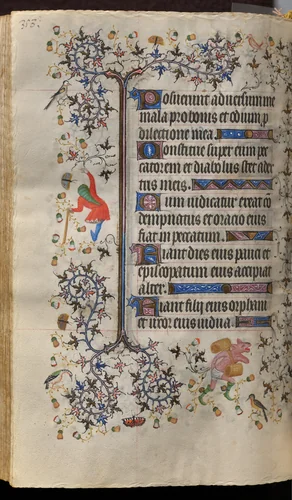 Posuerunt adversum me
mala pro bonis et odium p
dilectione mea.
Constitue super eum pec
catorem et diabolus stet a dex
tris meis.
Cum iudicatur exeat cō
dempnatus et oracio eius
fiat in peccatum.
Fiant dies eius pauci et
episcopatum eius accipiat
alter.
Fiant filij eius orphani
et uxor eius vidua.